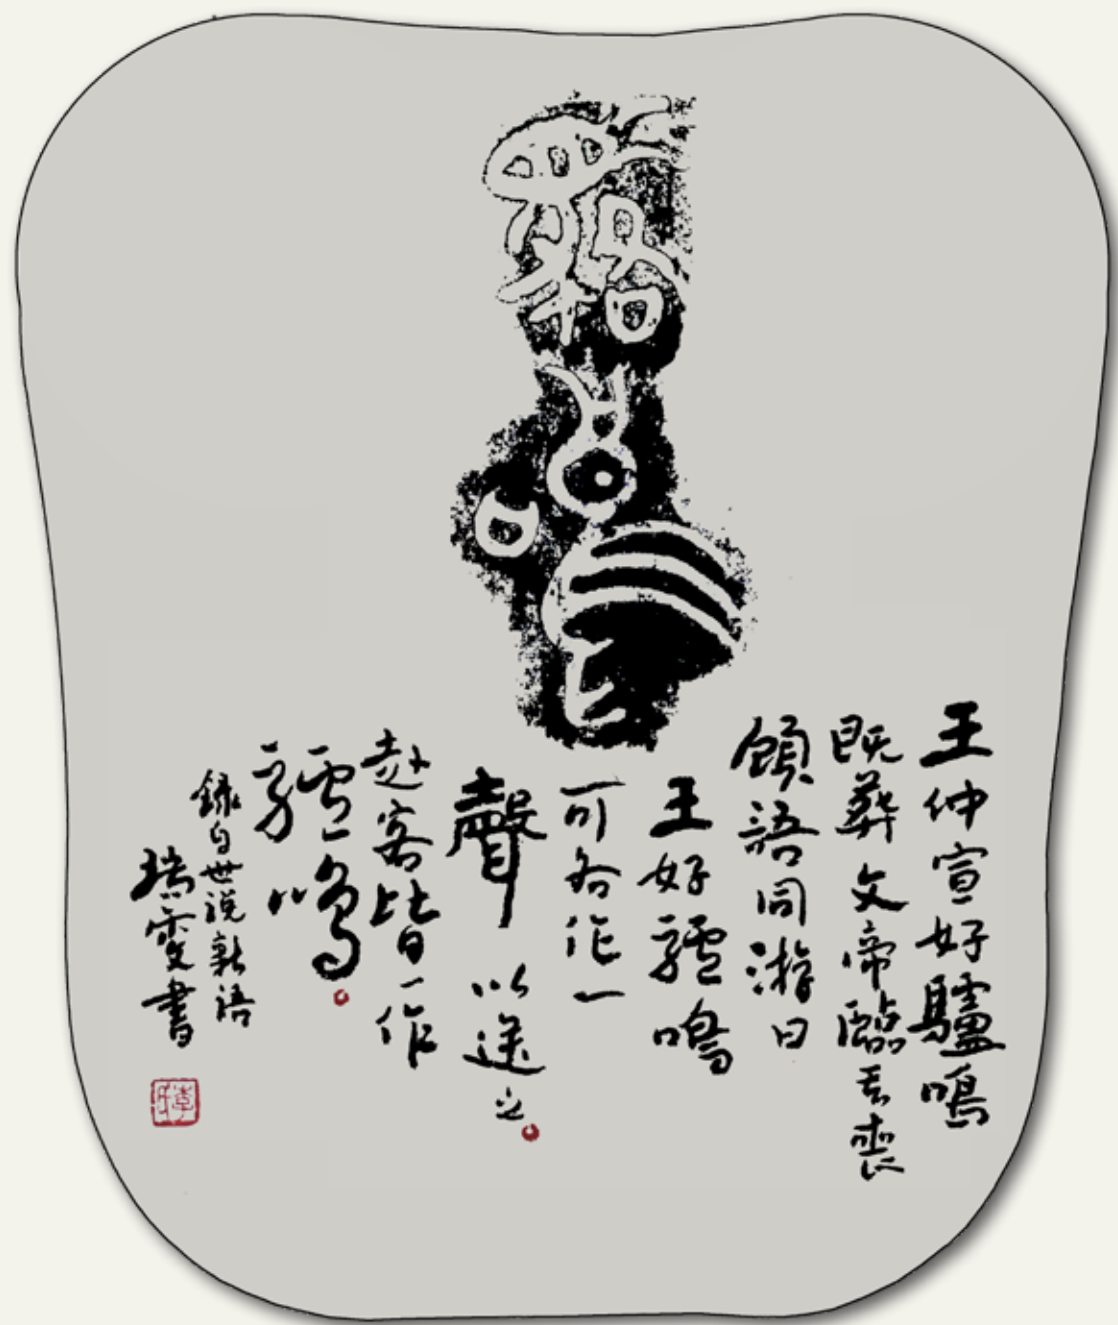 王仲宣好驢鳴
既葬文帝臨其喪
顧語同游曰
王好驢鳴
可各作一
聲以送之
赴客皆一作
驢鳴
錄自世说新語
瑞雯書